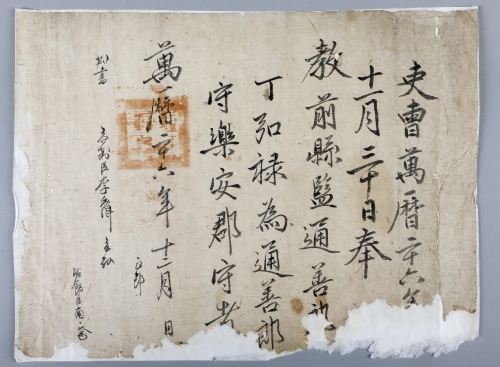 吏曹萬曆二十六年
十一月三十日奉
教前縣監通善郎
丁弘祿為通善郎
守樂安郡守者
萬曆二十六年十二月 日
判書
正郎